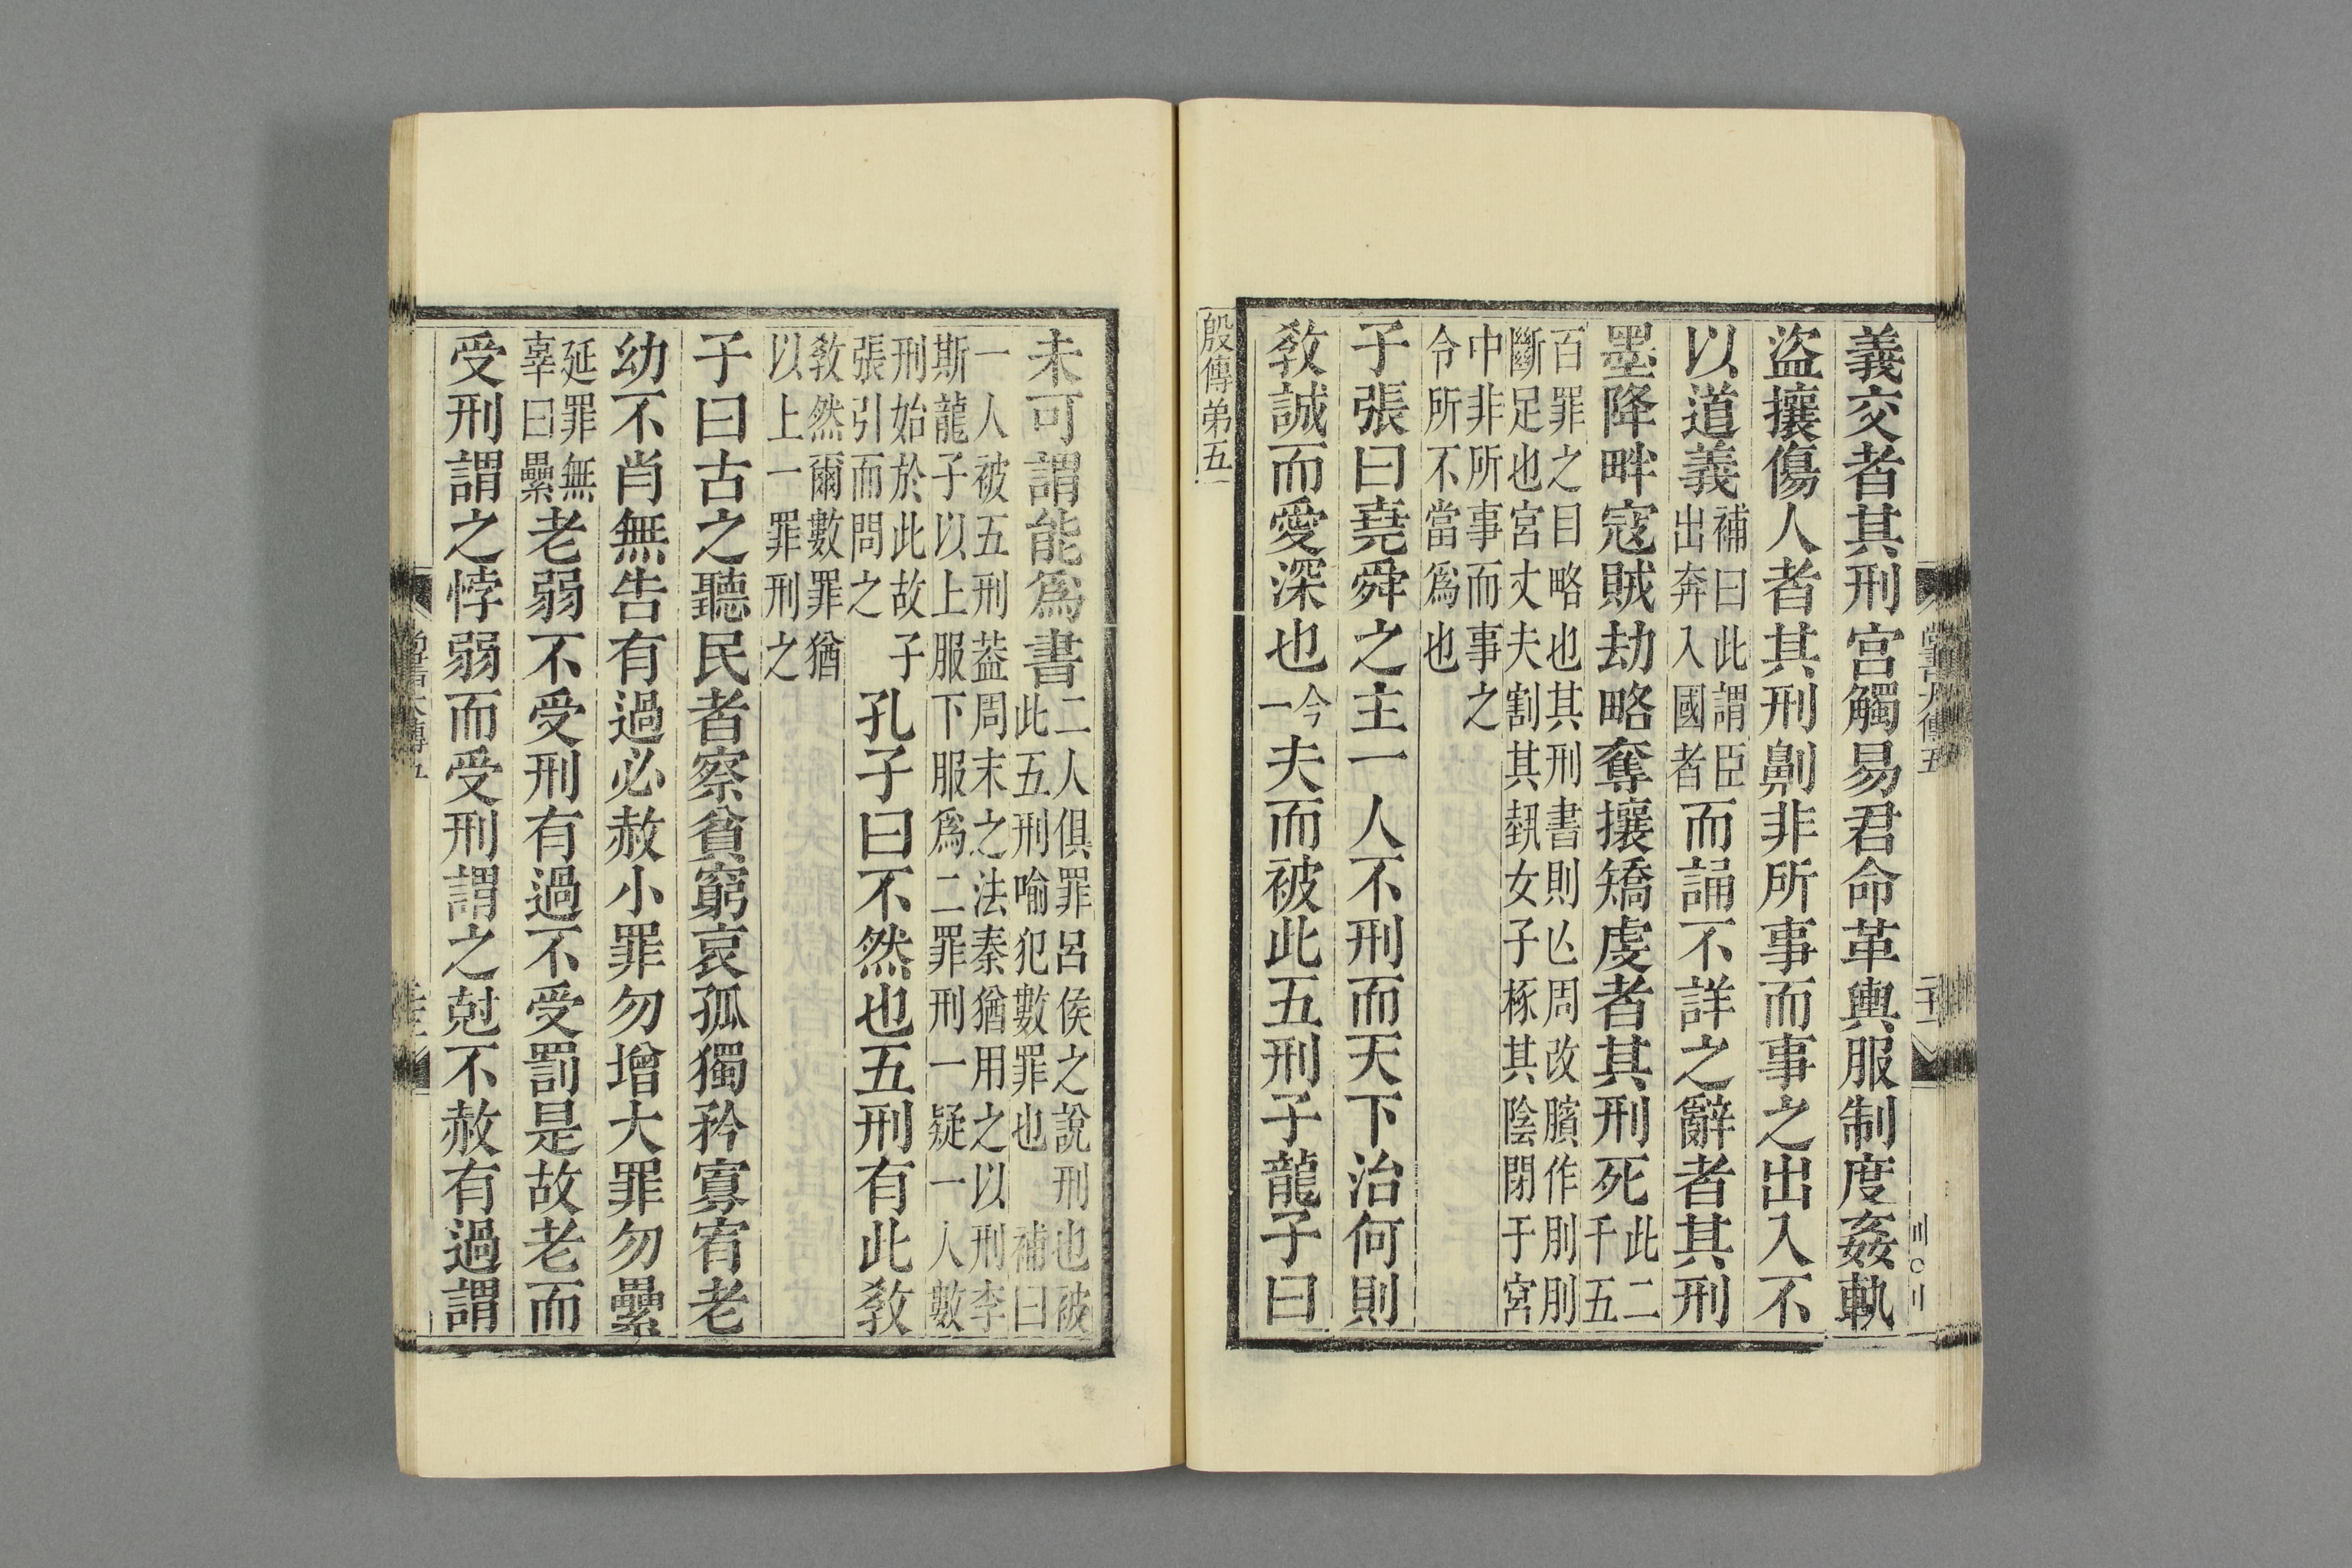 義交者其刑宮觸易君命革輿服制度姦軌
盜攘傷人者其刑劓非所事而事之出入不
以道義補曰此謂臣出奔入國者而誦不詳之辭者其刑
墨降畔寇賊劫略奪攘矯虔者其刑死此二千五
百罪之目略也其刑書則亾周改臏作刖刖
斷足也宮丈夫割其埶女子椓其陰閉于宮
中非所事而事之
令所不當爲也
子張曰堯舜之主一人不刑而天下治何則
敎誠而愛深也今一夫而被此五刑子龍子曰
殷傳弟五
未可謂能爲書二人俱罪呂侯之說刑也被
此五刑喻犯數罪也補曰
一人被五刑葢周末之法秦猶用之以刑李
斯龍子以上服下服爲二罪刑一疑一人數
刑始於此故子張引而問之孔子曰不然也五刑有此敎
敎然爾數罪猶
以上一罪刑之
子曰古之聽民者察貧窮哀孤獨矜寡宥老
幼不肖無告有過必赦小罪勿增大罪勿纍
延罪無辜曰纍老弱不受刑有過不受罰是故老而
受刑謂之悖弱而受刑謂之尅不赦有過謂